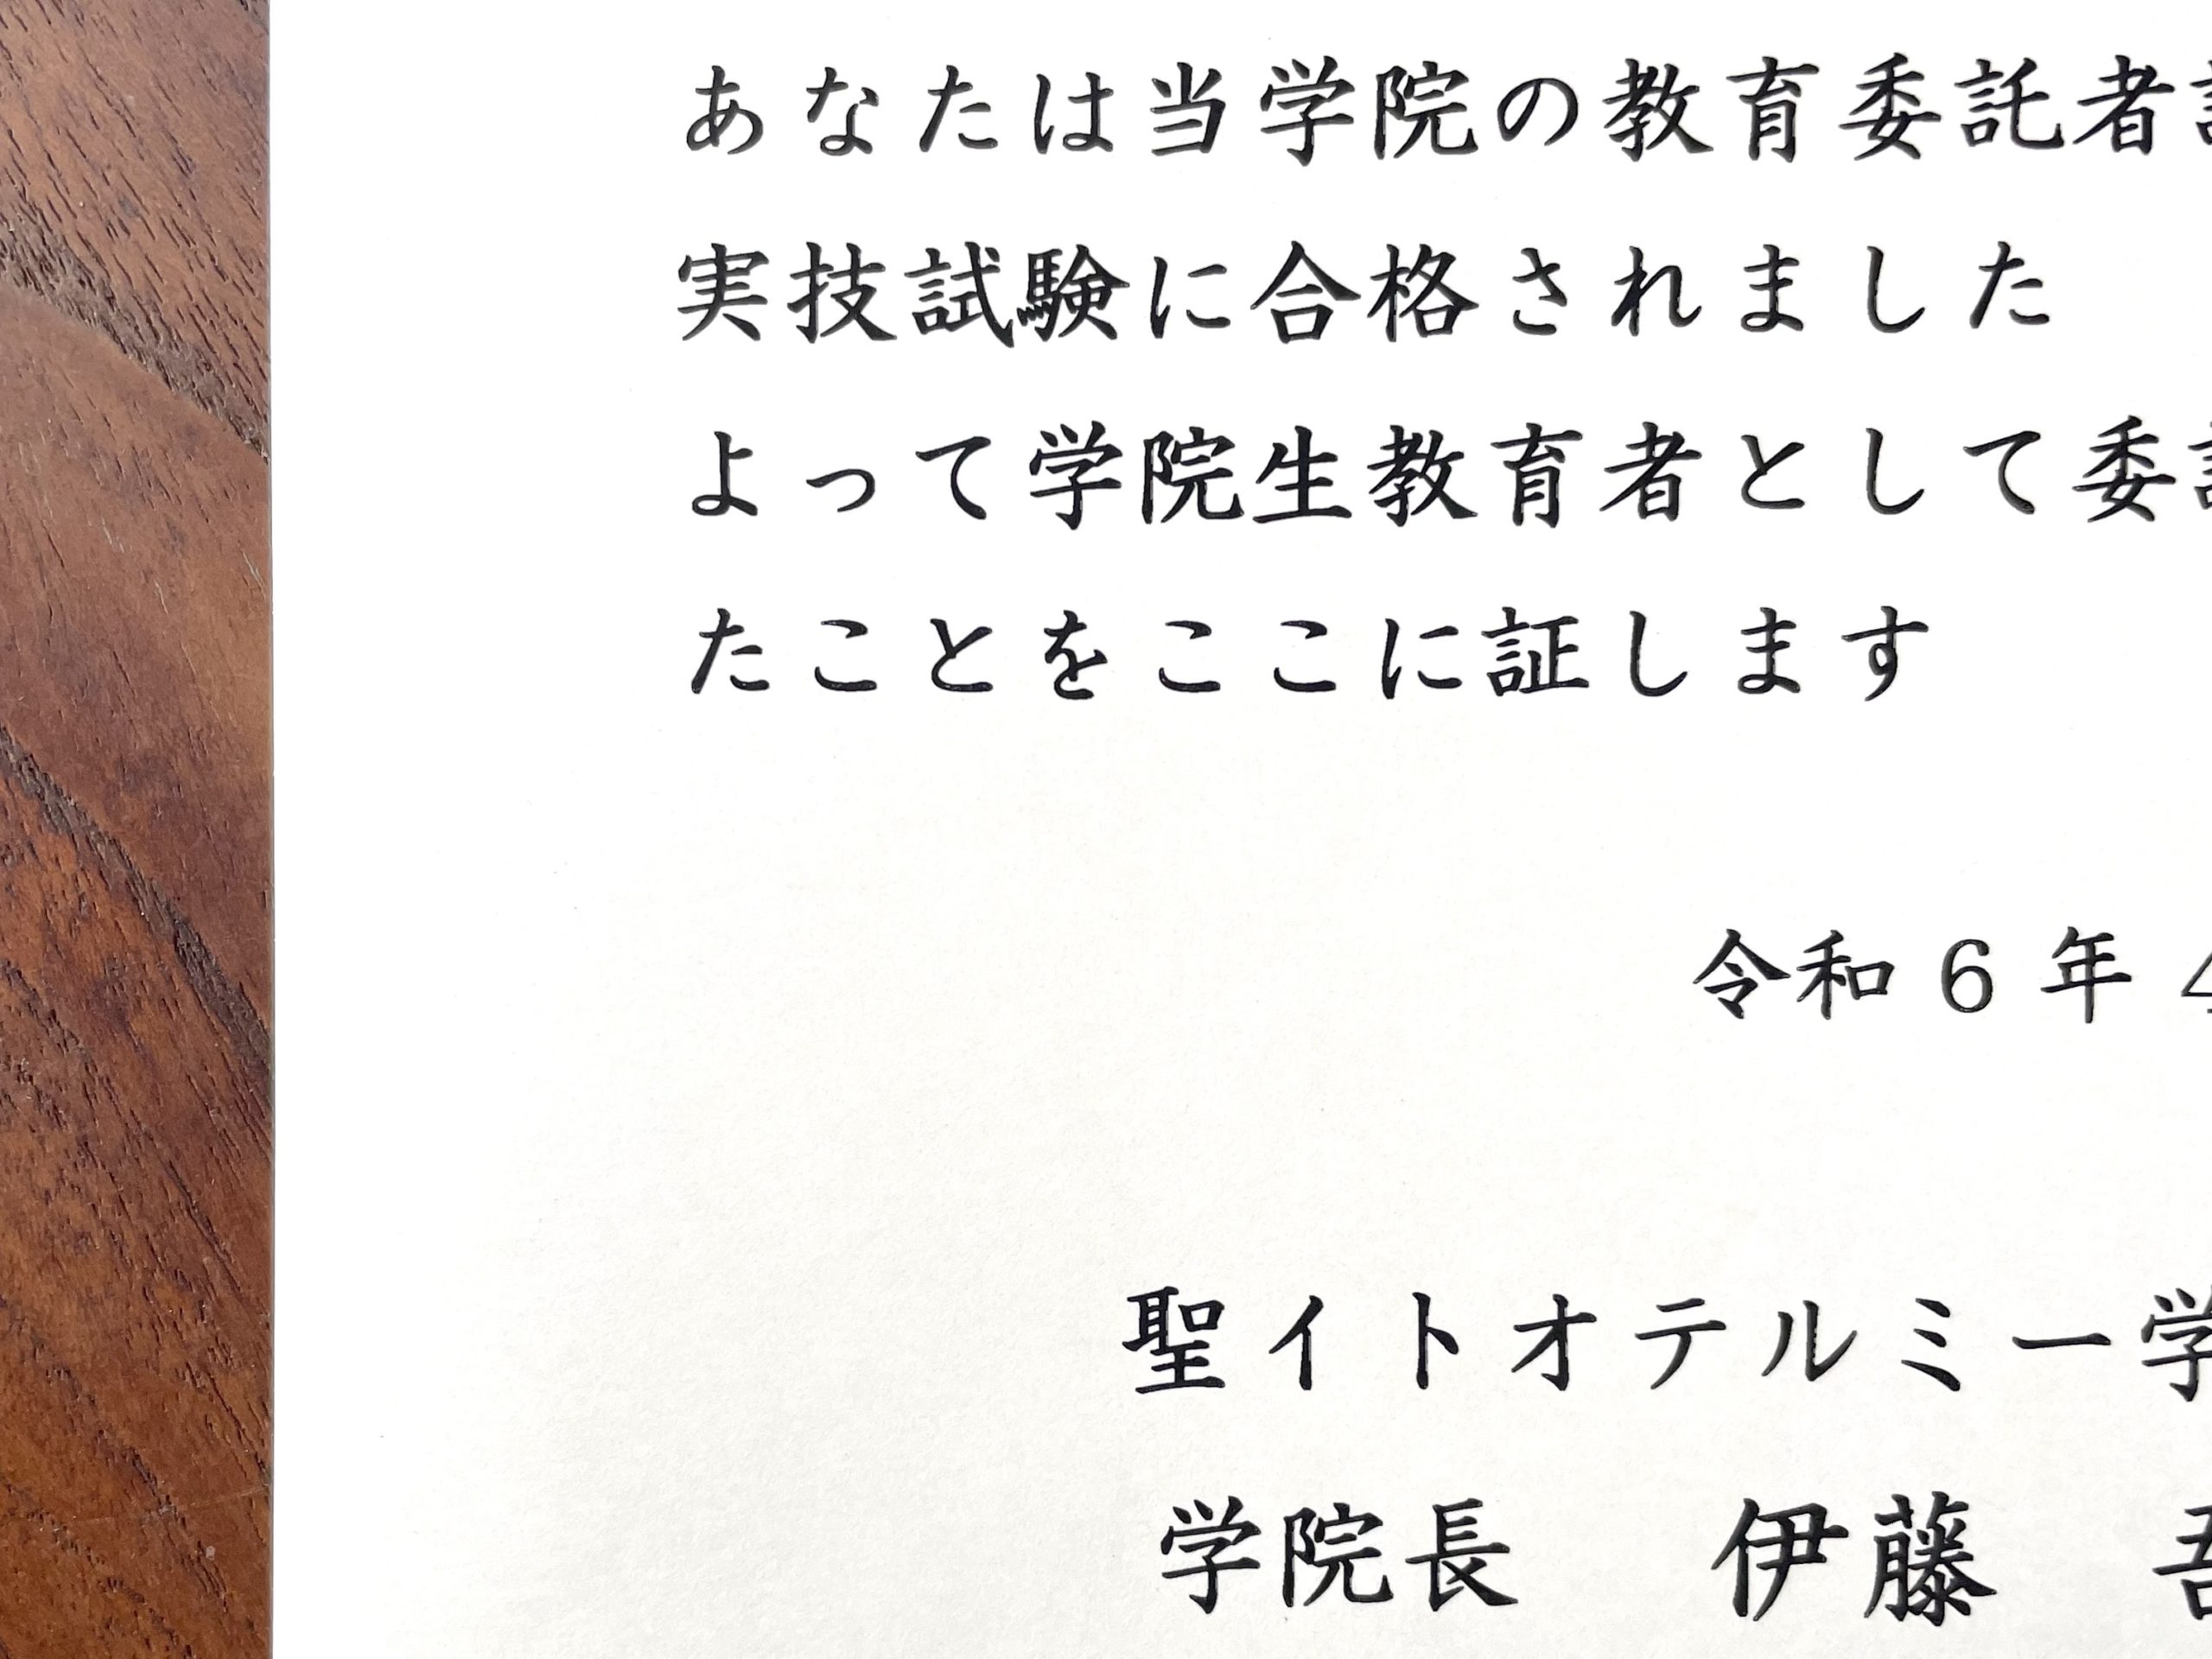 あなたは当学院の教育委託者
実技試験に合格されました
よって学院生教育者として委
たことをここに証します
令和6年
聖イトオテルミー学
学院長 伊藤